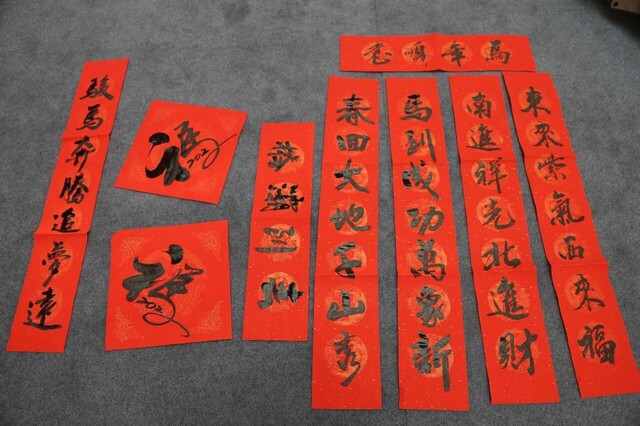 馬年順意
東來紫氣西來福
南進祥光北進財
馬到成功萬家新
春回大地千山秀
駿馬奔騰追夢遠